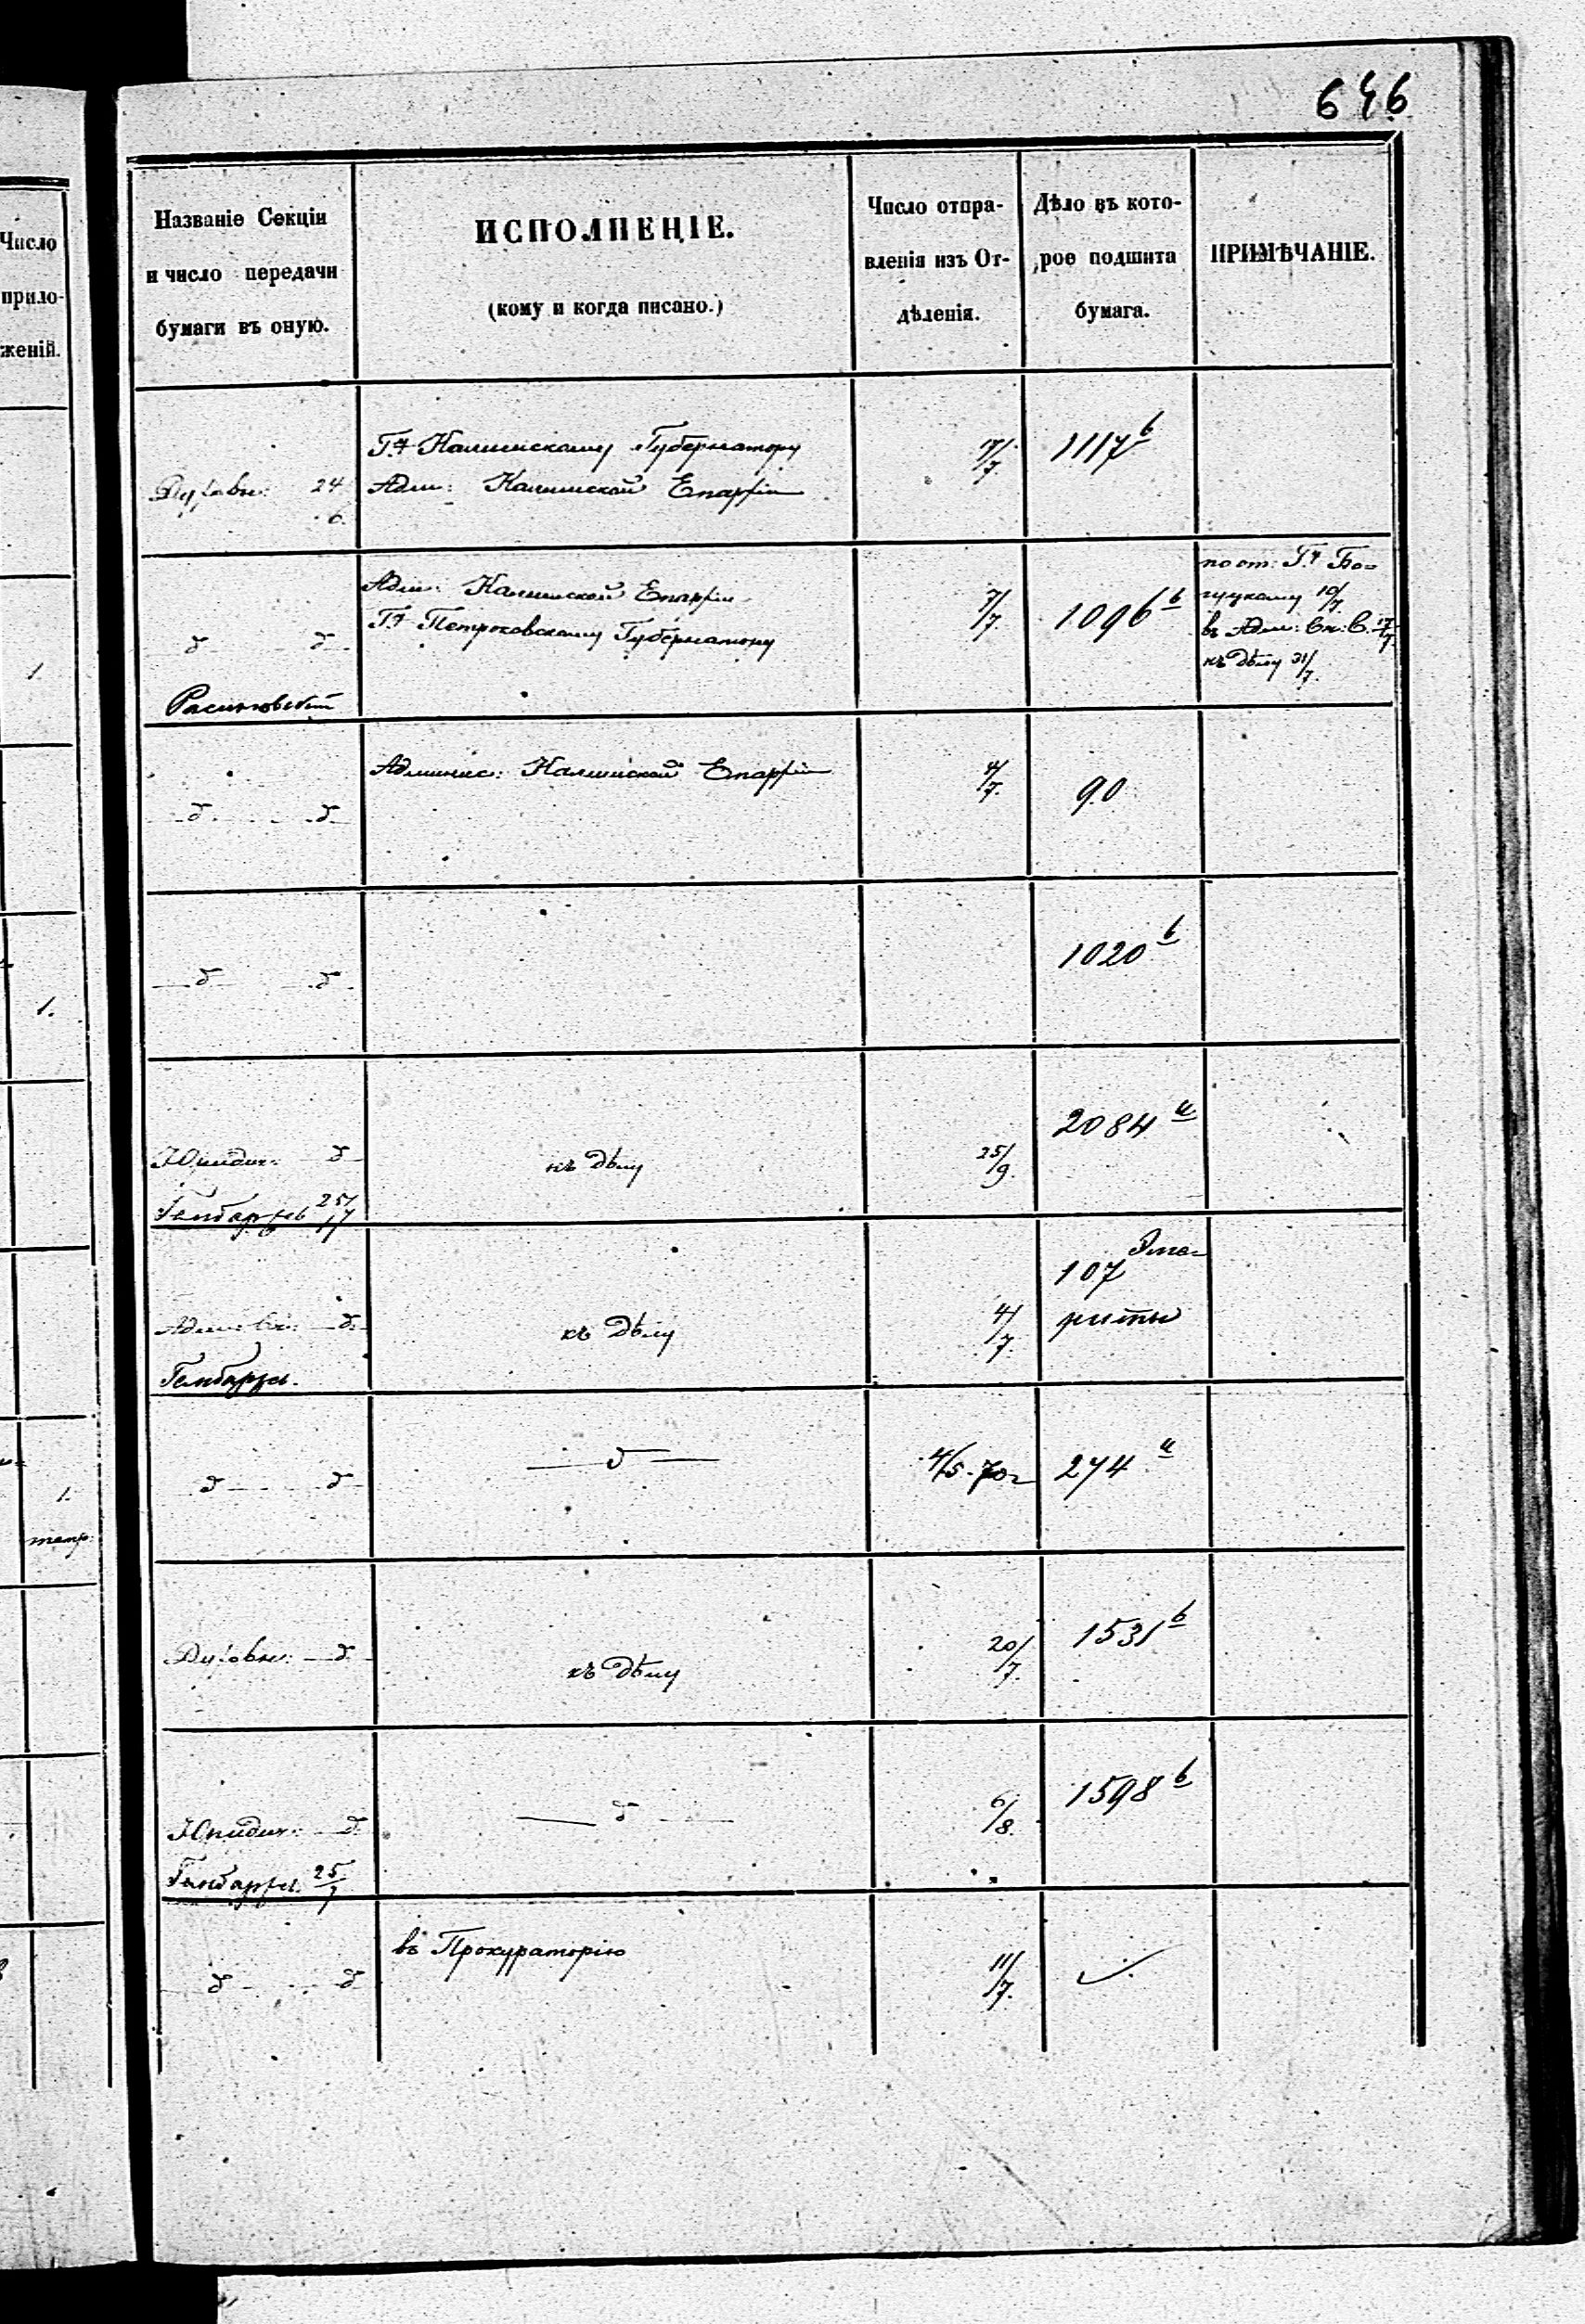 646
Число
прило-
женій.
Названіе Секціи
и число передачи
бумаги въ оную.
ИСПОЛНЕНІЕ.
(кому и когда писано.)
Число отпра-
вленія изъ От-
дѣленія.
Дѣло въ кото-
рое подшита
бумага.
ПРИМѢЧАНІЕ.
Духовн: 24
6.
Г.ⁿ Калишскому Губернатору
Адм: Калишской Епархіи
17/7.
1117 б
д д
Адм: Калишской Епархіи
Г.ⁿ Петроковскому Губернатору
7/7.
1096 б
пост: Г.ⁿ Бо=
гуцкому 10/7.
въ Адм: Ск: С. 17/7.
къ дѣлу 31/7.
1
д д
Админис: Калишской Епархіи
4/7.
90
д д
1020 б
1.
Юридич: д
Гембаржев 25/7
къ дѣлу
25/9.
2084 и
Адм: Ск: д.
Гембаржев.
къ дѣлу
4/7.
107 Эме=
риты
д д
д
4/5-70г
274 и
1.
Духовн: д.
къ дѣлу
20/7.
1531 б
Юридич: д.
Гембаржев. 25/7
д
6/8.
1598 б
д д
въ Прокураторію
11/7.